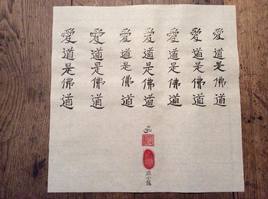 愛道是佛道
愛道是佛道
愛道是佛道
愛道是佛道
愛道是佛道
愛道是佛道
愛道是佛道